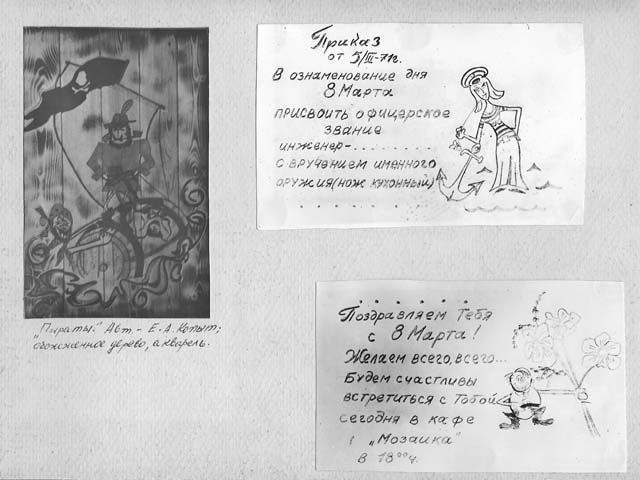 "Пираты." Авт. - Е.А. Копыт;
обожженное дерево, акварель.
Приказ
от 5/III-71г.
В ознаменование дня
8 Марта
присвоить офицерское
звание
инженер-.........
с вручением именного
оружия (нож кухонный)
. . . . . . . .
. . . . . .
Поздравляем Тебя
с 8 Марта!
Желаем всего, всего...
Будем счастливы
встретиться с Тобой
сегодня в кафе
"Мозаика"
в 18⁰⁰ч.